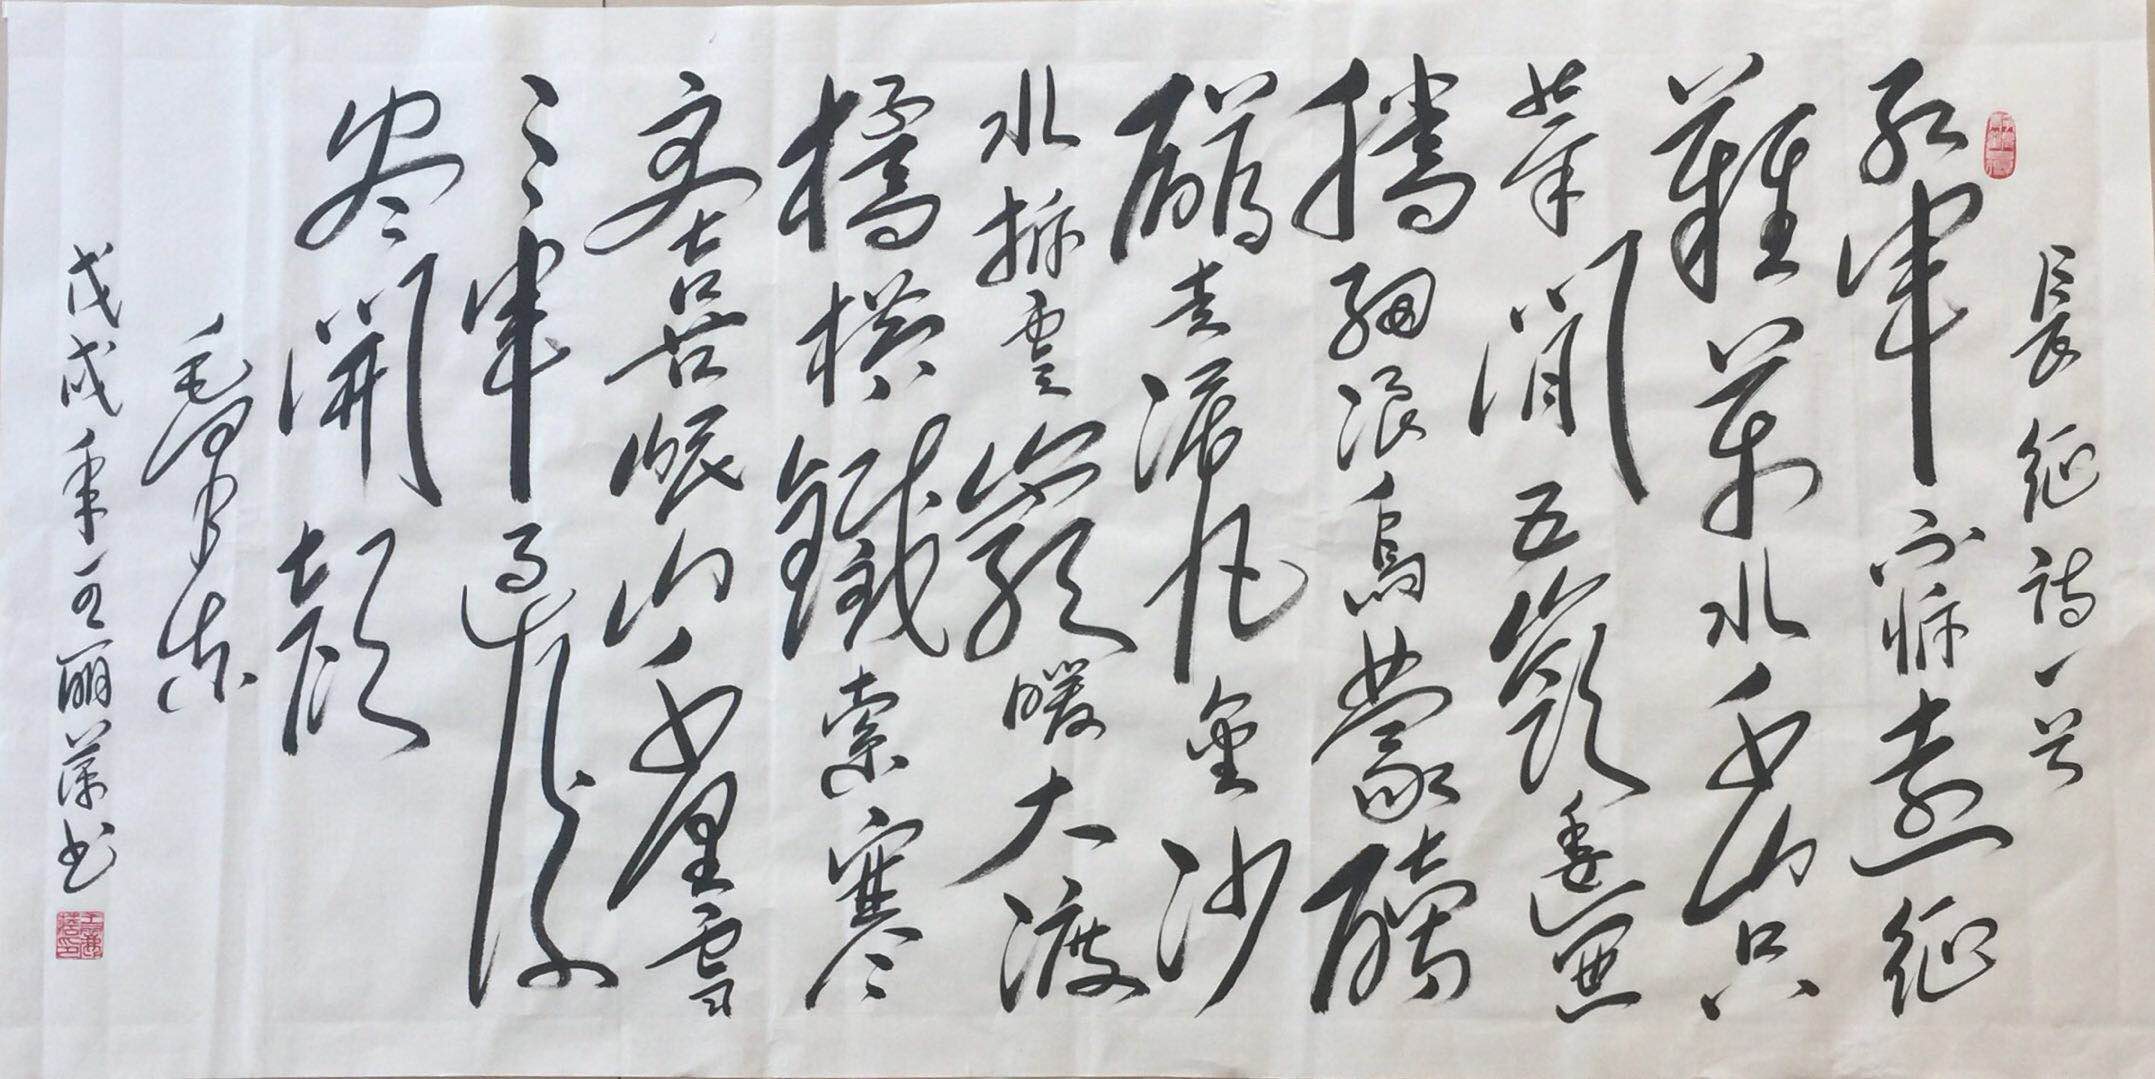 長征詩一首
红军不怕遠征
難萬水千山只
等閒五嶺逶迤
腾細浪烏蒙磅
礴走泥丸金沙
水拍雲崖暖大渡
橋横鐵索寒
更喜岷山千里雪
三軍過後
尽開颜
毛澤東
戊戌年王丽萍书